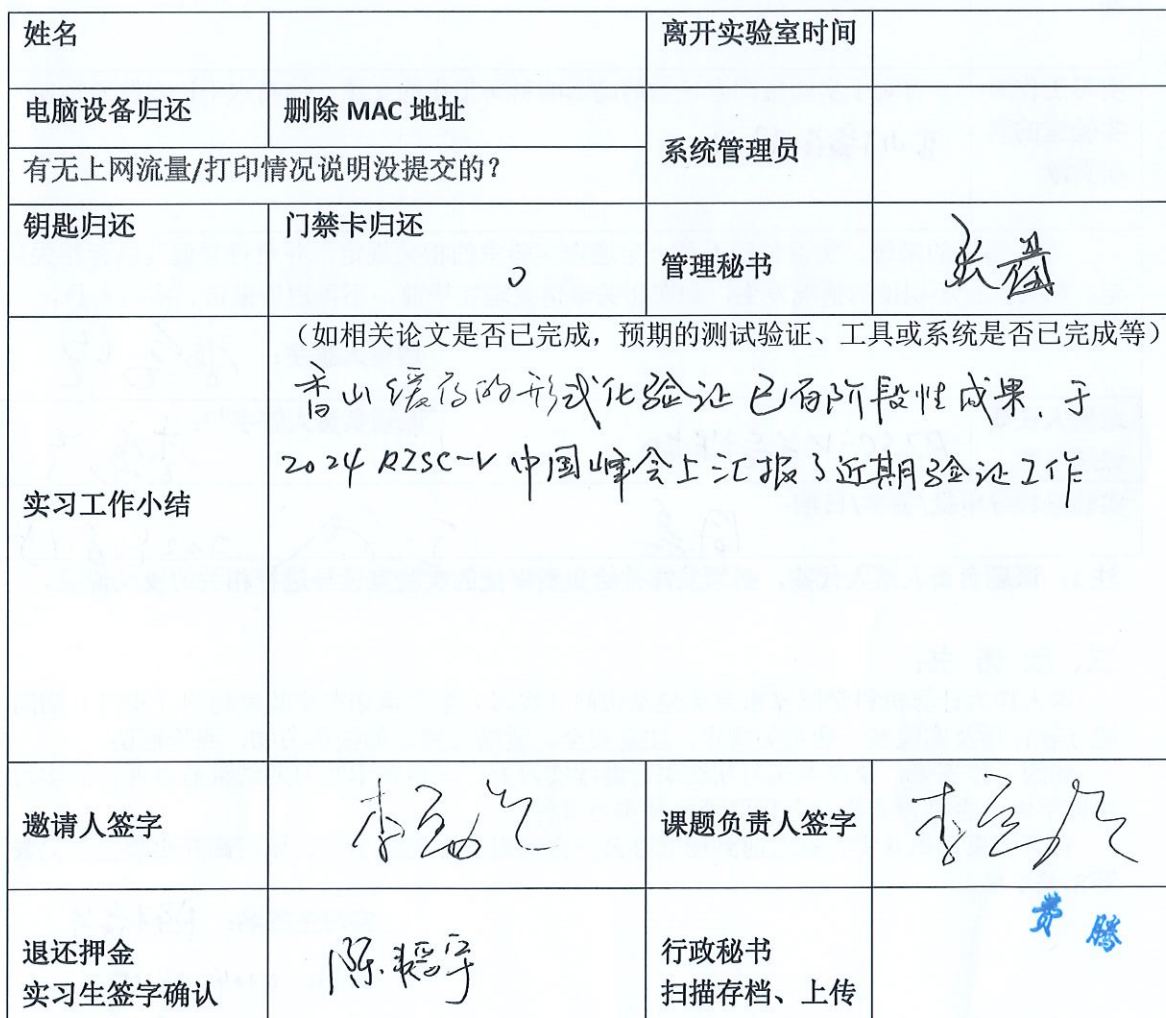 姓名 离开实验室时间
电脑设备归还 删除 MAC 地址 系统管理员
有无上网流量/打印情况说明没提交的?
钥匙归还 门禁卡归还 管理秘书
(如相关论文是否已完成,预期的测试验证、工具或系统是否已完成等)
香山缓存的形式化验证已有阶段性成果、于
2024 RISC-V 中国峰会上汇报了近期验证工作
实习工作小结
邀请人签字 课题负责人签字
费腾
退还押金 行政秘书
实习生签字确认 扫描存档、上传